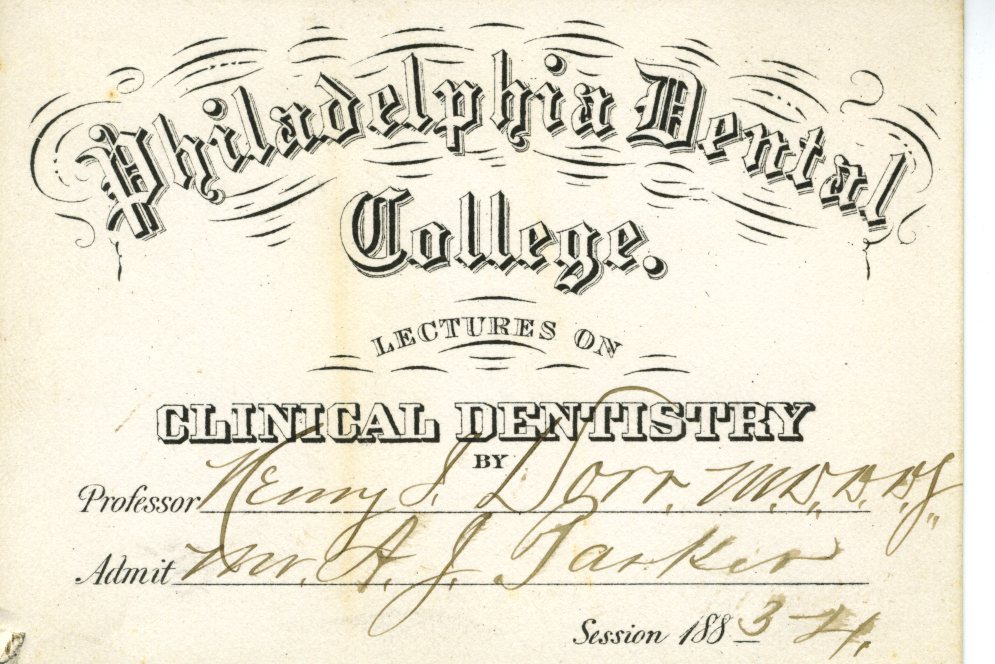 Philadelphia Dental
College.
LECTURES ON
CLINICAL DENTISTRY
BY
Professor Henry I. Dorr, M.D., D.D.S.,
Admit Mr. A. J. Parker
Session 1883-84.